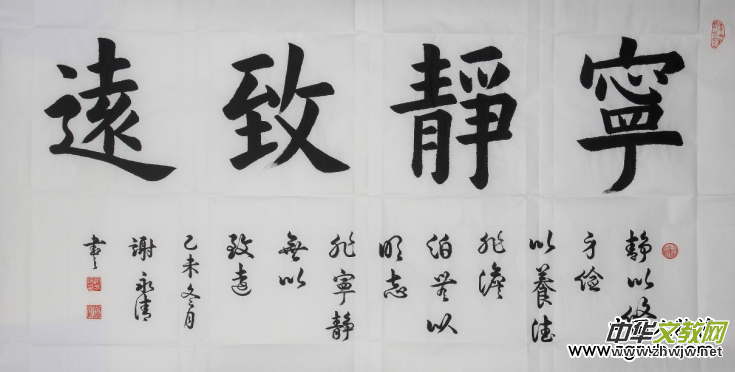 寧靜致遠
静以修
身儉
以養德
非澹
泊無以
明志
非寧靜
無以
致遠
乙未冬月
謝永清
書
中华文教网
www.zhwjw.net